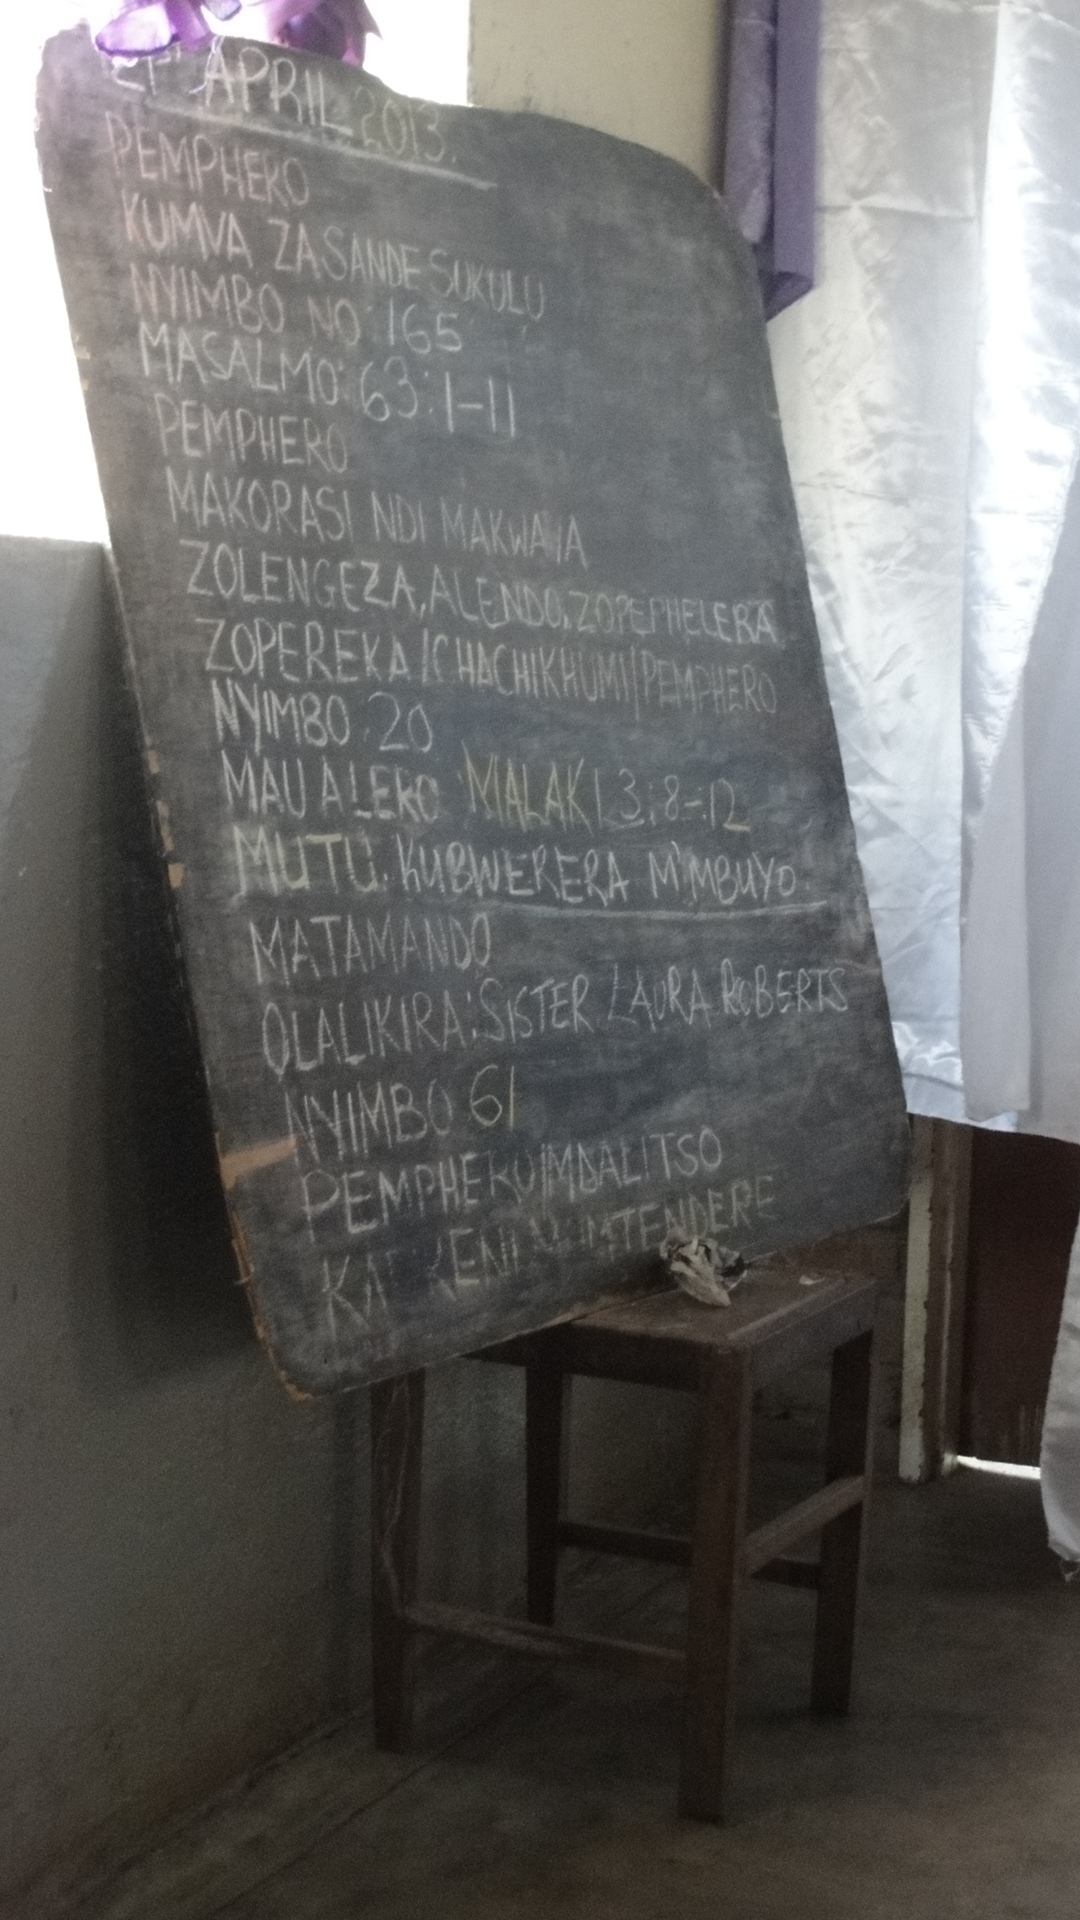 21ST APRIL 2013.
PEMPHERO
KUMVA ZA SANDE SUKULU
NYIMBO NO: 165
MASALMO: 63:1-11
PEMPHERO
MAKORASI NDI MAKWAYA
ZOLENGEZA, ALENDO, ZOPEPHELERA
ZOPEREKA/CHACHIKHUMI/PEMPHERO
NYIMBO: 20
MAU ALERO: MALAKI 3:8-:12
MUTU: KUBWERERA M'MBUYO.
MATAMANDO
OLALIKIRA: SISTER LAURA ROBERTS
NYIMBO 61
PEMPHERO/MDALITSO
MTENDERE